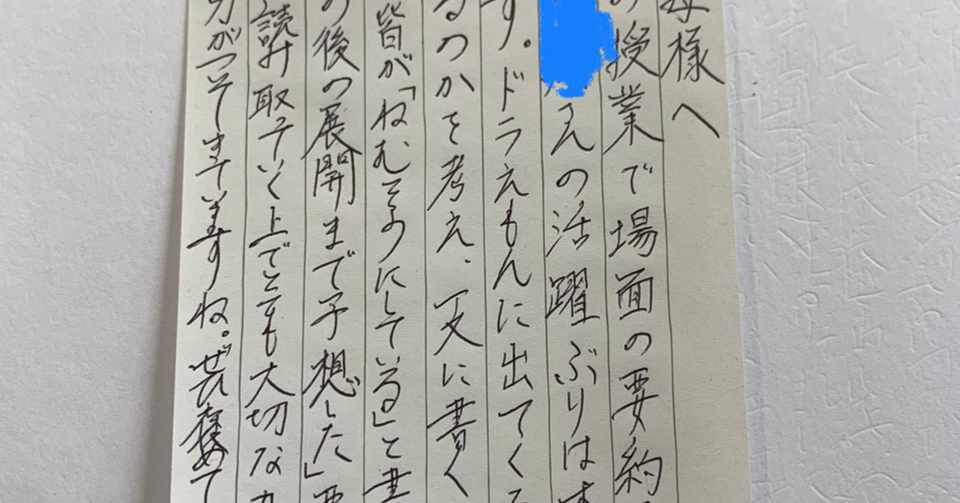 母様へ
の授業で場面の要約
さんの活躍ぶりは
す。ドラえもんに出てくる
るのかを考え、一文に書く
皆が「ねむそうにしている」と書
の後の展開まで予想した」要
読み取っていく上でとても大切な力
力がついてきていますね。ぜひ褒めて